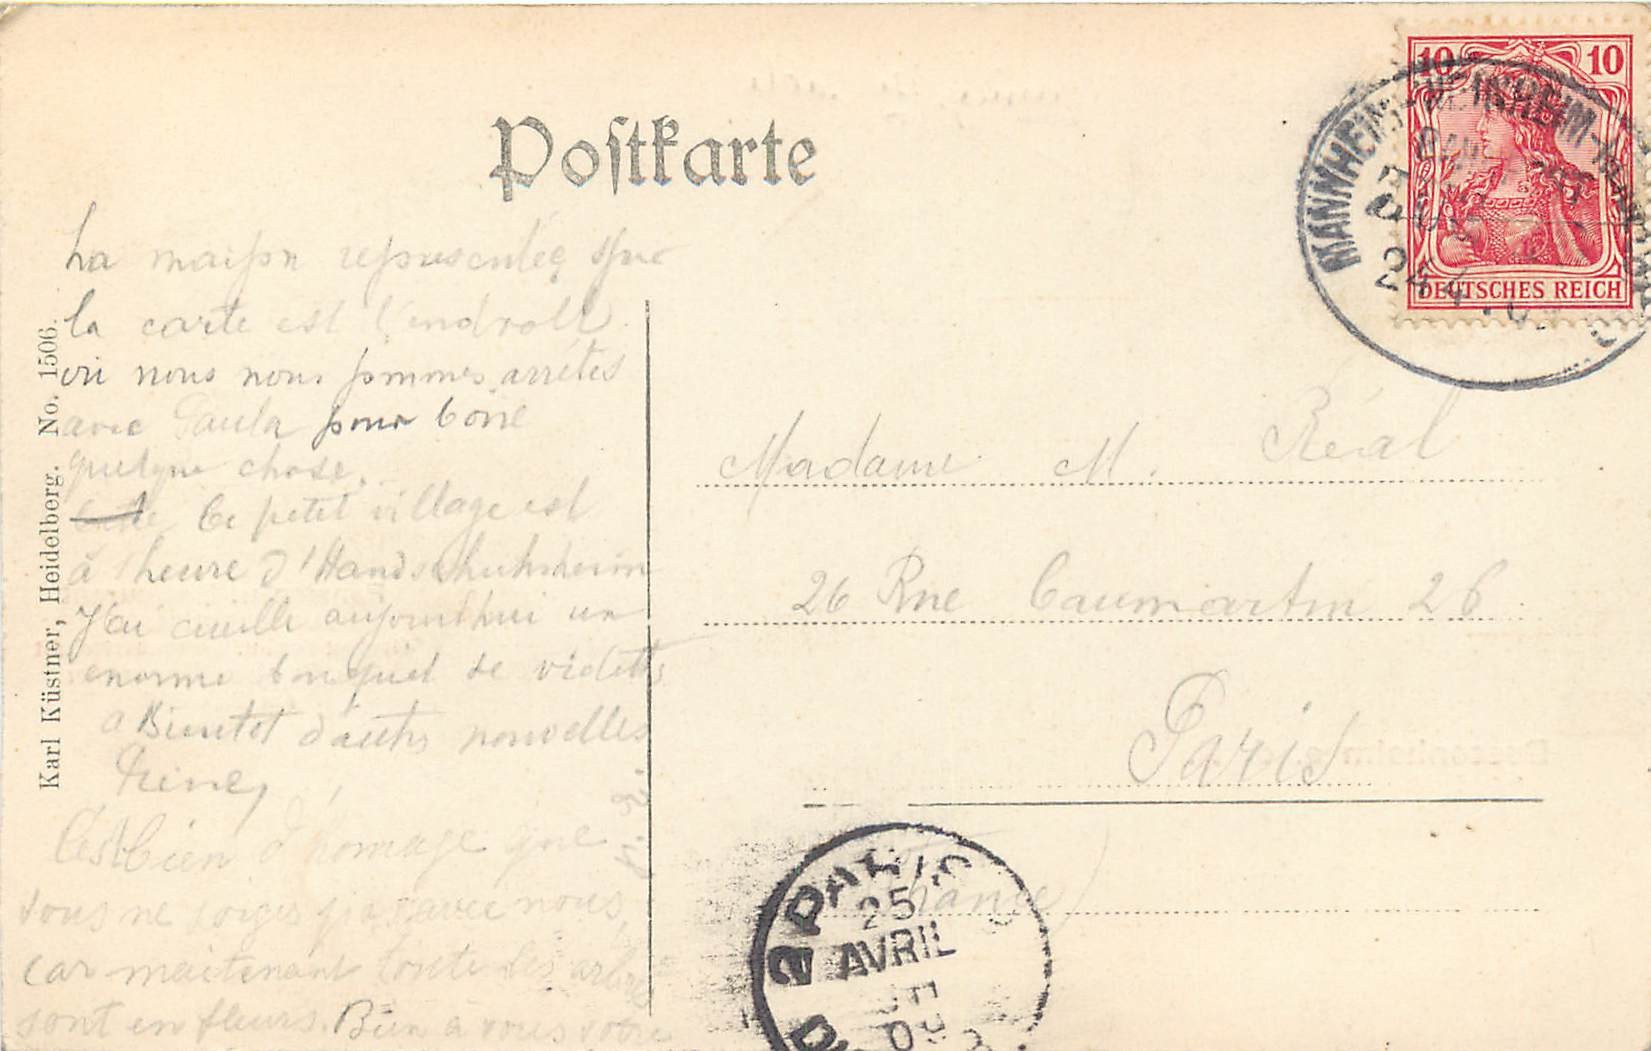 Postkarte
10 10
DEUTSCHES REICH
MANNHEIM-WEINHEIM-
24 4
La maison representée sur
la carte est l'endroit
où nous nous sommes arrétés
avec Paula pour boire
quelque chose.
Ce petit village est
à 1 heure d'Handschuhsheim
J'ai cueilli aujourd'hui un
enorme bouquet de violetts
a Bientot d'autrs nouvelles
C'est bien d'homage que
vous ne soiyes pas avec nous,
car maitenant toute les arbres
sont en fleurs. Bien a vous votre
Karl Küstner, Heidelberg. No. 1506.
Madame M. Réal
26 Rue Caumartin 26
Paris
(France)
2 PARIS
25
AVRIL